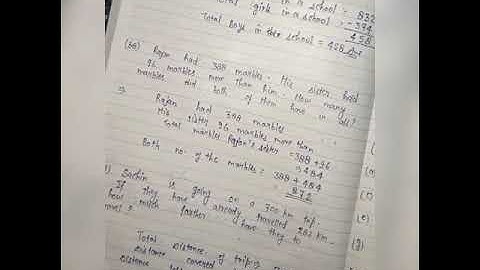 in a school = 832
Total girls in a school = - 374
Total boys in the school = 458 Ans
458
(30) Rajan had 388 marbles. His sister had
96 marbles more than him. How many
marbles did both of them have in all?
⇒ Rajan had 388 marbles
His sister 96 marbles more than
Total marbles Rajan's sister = 388 + 96
= 484
Both no. of the marbles = 388 + 484
= 872
) Sachin is going on a 700 km trip.
If they have already travelled 282 km.
how much farther have they to
travel?
Total distance of trip is
distance covered
distance
(
(c)
(e)
(g)